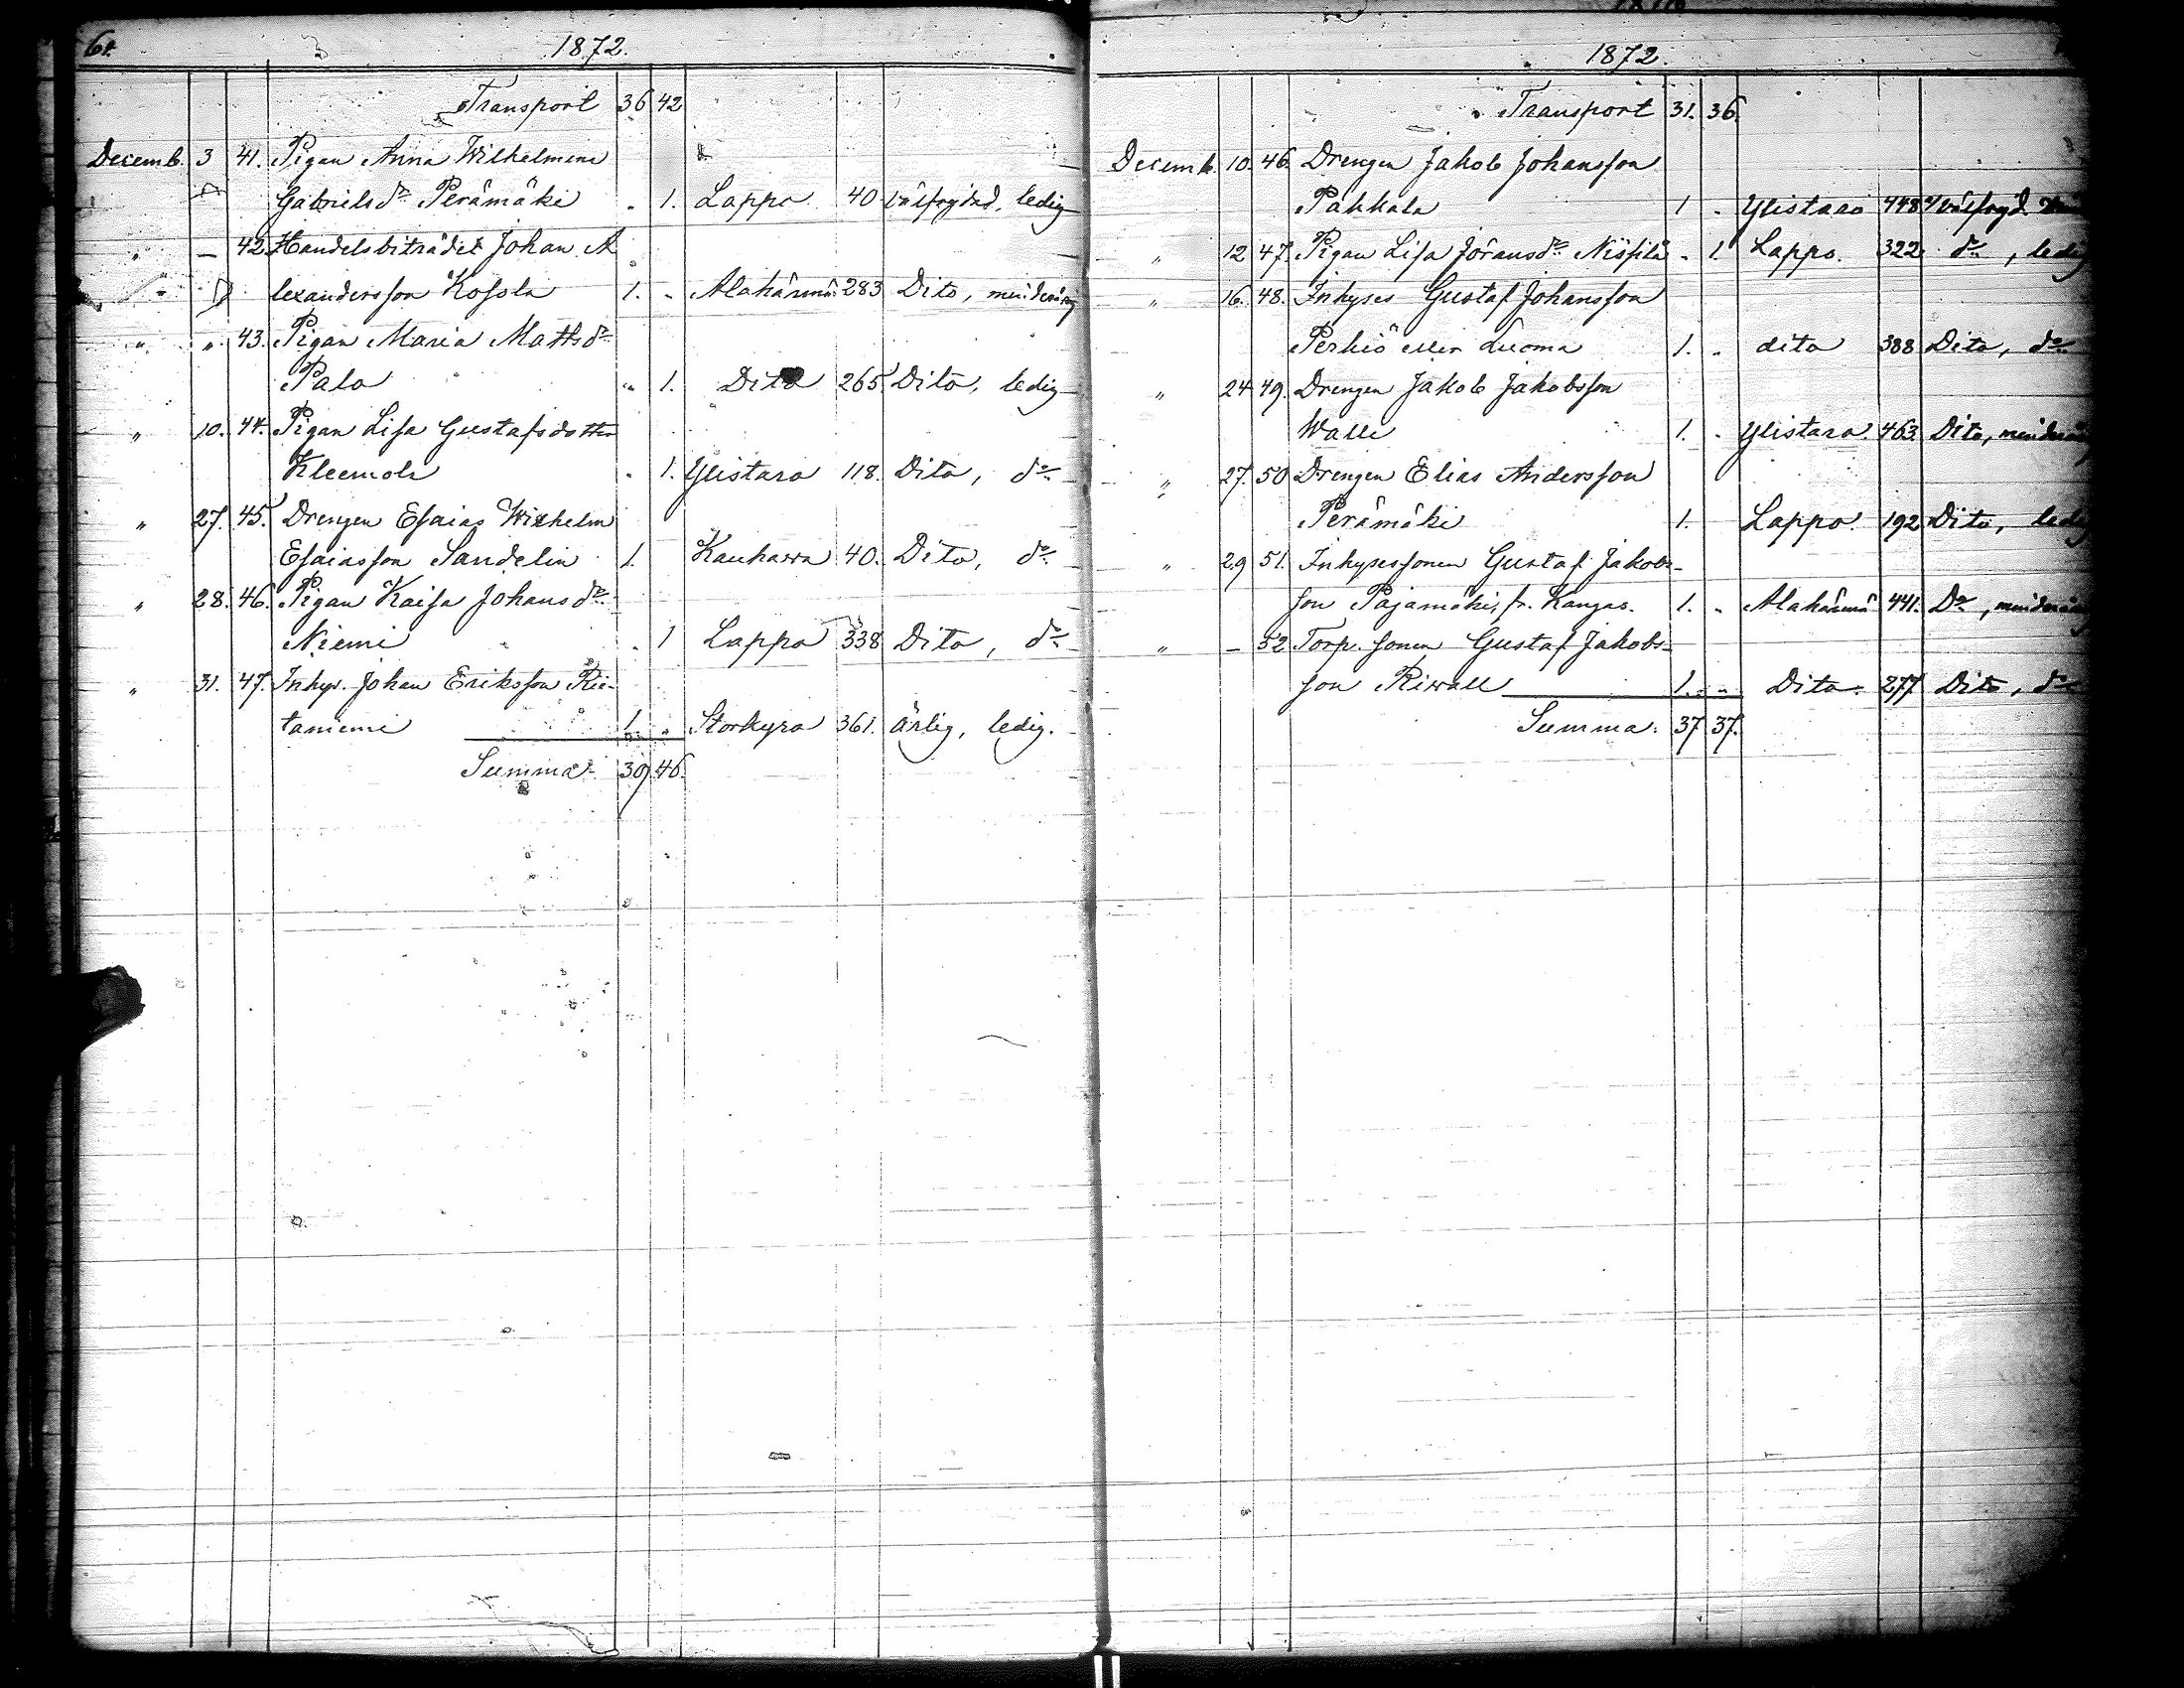 64.
1872.
Transport 36 42
Decemb. 3 41. Pigan Anna Wilhelmina
Gabrielsdr Perämäki " 1. Lappo 40 välfrejdad, ledig
" — 42. Handelsbiträdet Johan A
lexandersson Kossola 1. " Alahärmä 283 Dito, minderårig
" " 43. Pigan Maria Mattsdr
Palo " 1. Dito 265 Dito, ledig
" 10. 44. Pigan Lisa Gustafsdotter
Kleemola " 1. Ylistaro 118. Dito, do
" 27. 45. Drengen Esaias Wilhelm
Esaiasson Sandelin 1. Kauhawa 40. Dito, do
" 28. 46. Pigan Kaisa Johansdr
Niemi " 1 Lappo 338 Dito, do
" 31. 47. Inhys. Johan Eriksson Rin-
taniemi 1. " Storkyro 361. ärlig, ledig.
Summa 39 46.
1872.
Transport 31. 36.
Decemb. 10. 46. Drengen Jakob Johansson
Pakkala 1 " Ylistaro 448 välfrejd.
" 12 47. Pigan Lisa Jöransdr Nissilä " 1. Lappo. 322 do, ledig
" 16. 48. Inhyses Gustaf Johansson
Perkiö eller Luoma 1. " dito 388 Dito, do
" 24 49. Drengen Jakob Jakobsson
Walli 1. " Ylistaro. 463 Dito, minderårig
" 27. 50 Drengen Elias Andersson
Perämäki 1. Lappo. 192 Dito, ledig
" 29 51. Inhysessonen Gustaf Jakobs-
son Pajamäki, fr. Kangas. 1. " Alahärmä 441. Do, minderårig
" — 52 Torp. sonen Gustaf Jakobs-
son Riwall 1. " Dito. 277 Dito, do
Summa: 37 37.